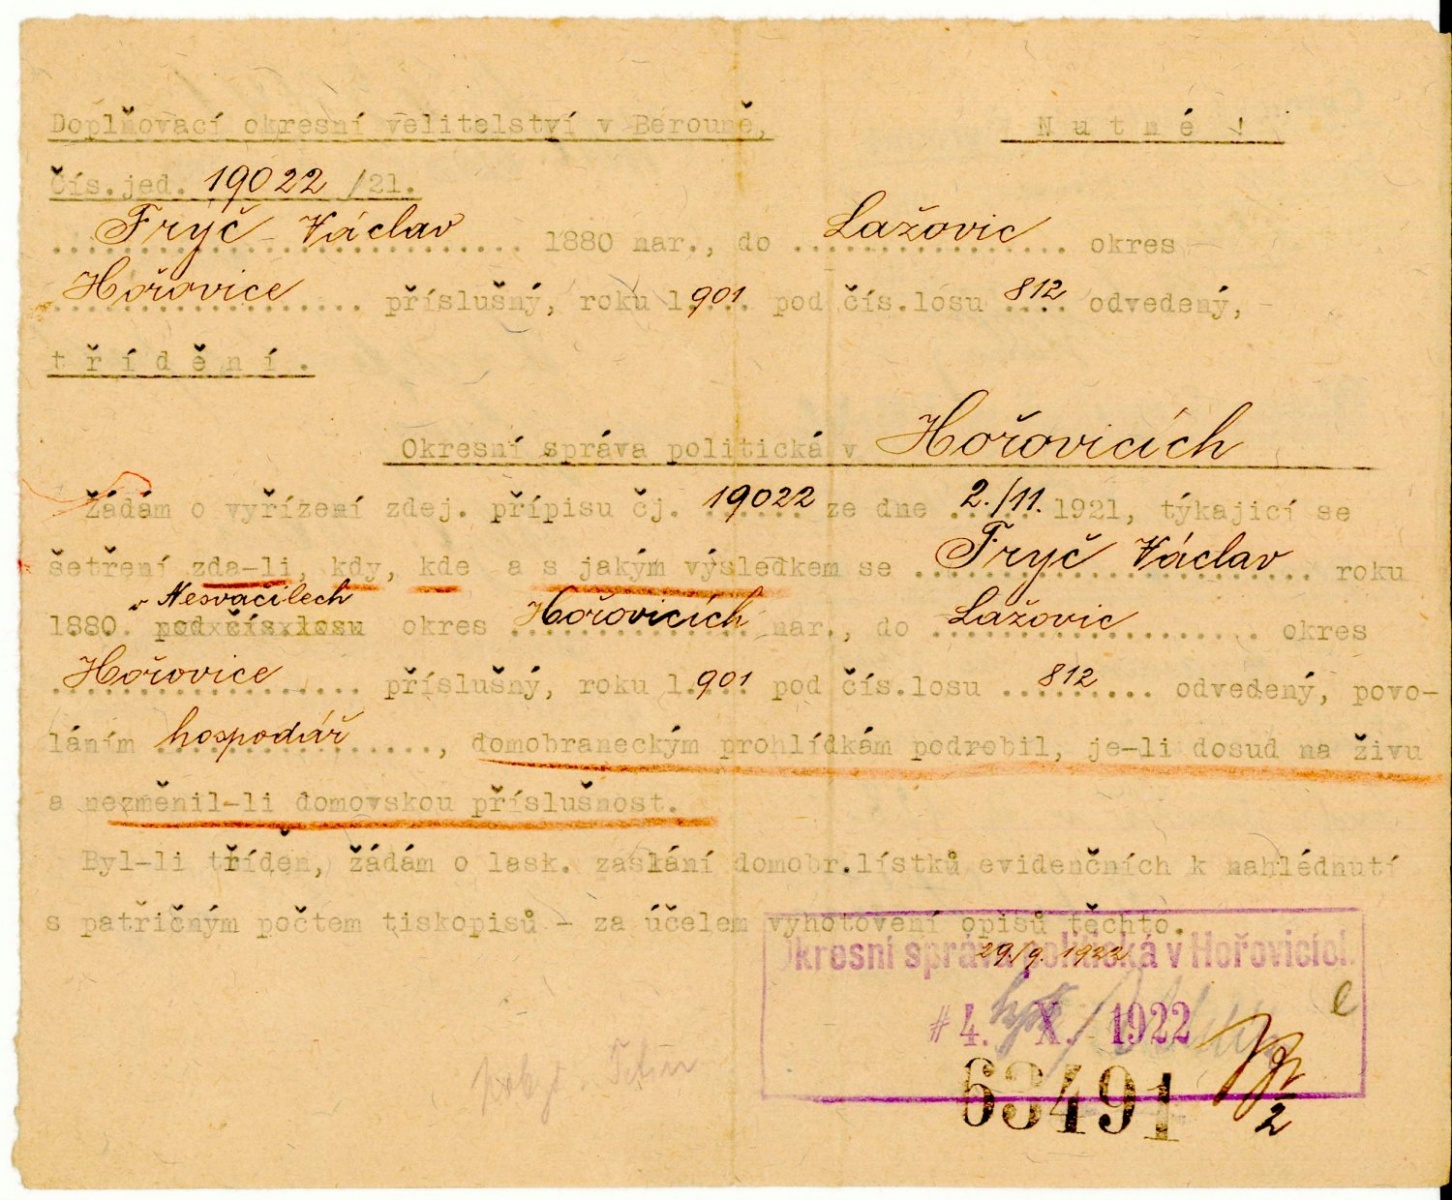 Doplňovací okresní velitelství v Berouně, Nutné !
Čís.jed. 19022 /21.
Fryč Václav 1880 nar., do Lažovic okres
Hořovice příslušný, roku 1901 pod čís.losu 812 odvedený,
třídění.
Okresní správa politická v Hořovicích
Žádám o vyřízení zdej. přípisu čj. 19022 ze dne 2./11. 1921, týkajicí se
šetření zda-li, kdy, kde a s jakým výsledkem se Fryč Václav roku
v Nesvačilech
1880. pod čís losu okres Hořovicích nar., do Lažovic okres
Hořovice příslušný, roku 1901 pod čís.losu 812 odvedený, povo-
láním hospodář, domobraneckým prohlídkám podrobil, je-li dosud na živu
a nezměnil-li domovskou příslušnost.
Byl-li tříděn, žádám o lask. zaslání domobr.lístků evidenčních k nahlédnutí
s patřičným počtem tiskopisů - za účelem vyhotovení opisů těchto.
29./9. 1922
Okresní správa politická v Hořovicích.
4. X. 1922
63491
2